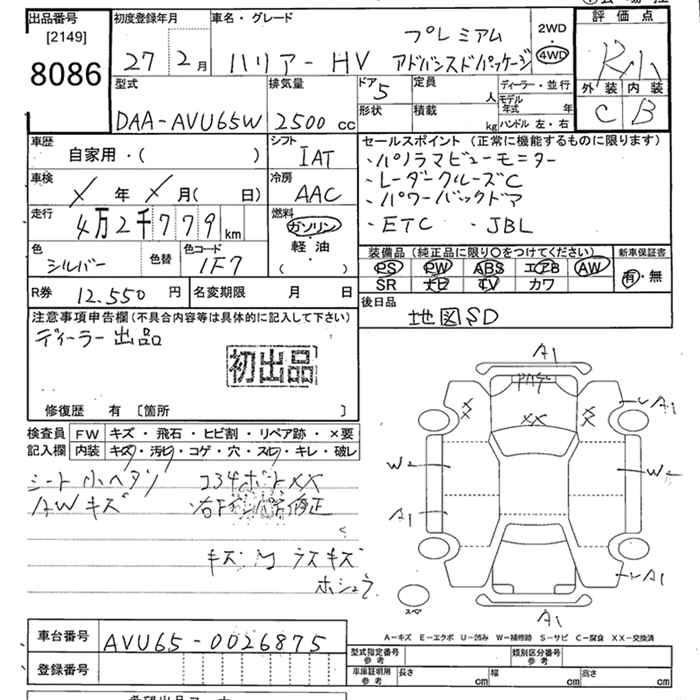 出品番号
[2149]
8086
初度登録年月
27 2月
車名・グレード
ハリアー HV プレミアム
アドバンスドパッケージ
2WD
4WD
評価点
外装 内装
C B
型式
DAA-AVU65W
排気量
2500 cc
ドア 5
定員 人
形状
積載 kg
ディーラー・並行
モデル年式 年
ハンドル 左・右
車歴
自家用・( )
シフト
IAT
車検
X年 X月( 日)
冷房
AAC
走行
4万2千779 km
燃料
ガソリン
軽・油
( )
色
シルバー
色替
色コード
1F7
セールスポイント (正常に機能するものに限ります)
・パノラマビューモニター
・レーダークルーズC
・パワーバックドア
・ETC ・JBL
装備品 (純正品に限り○をつけてください)
新車保証書
PS PW ABS エアB AW
SR ナビ TV カワ
有・無
R券 12.550円
名変期限 月 日
後日品
地図SD
注意事項申告欄(不具合内容等は具体的に記入して下さい)
ディーラー出品
初出品
修復歴 有 [箇所 ]
検査員記入欄
FW キズ・飛石・ヒビ割・リペア跡・×要
内装 キズ・汚レ・コゲ・穴・スレ・キレ・破レ
シート小ヘタリ
AWキズ
キズ
ラスキズ
A1
XX
A1
W2
W2
A1
A1
A1
スペア
A-キズ E-エクボ U-凹み W-補修跡 S-サビ C-腐食 XX-交換済
車台番号
AVU65-0026875
登録番号
型式指定番号 参考
類別区分番号 参考
車庫証明用 参考
長さ cm 幅 cm 高さ cm